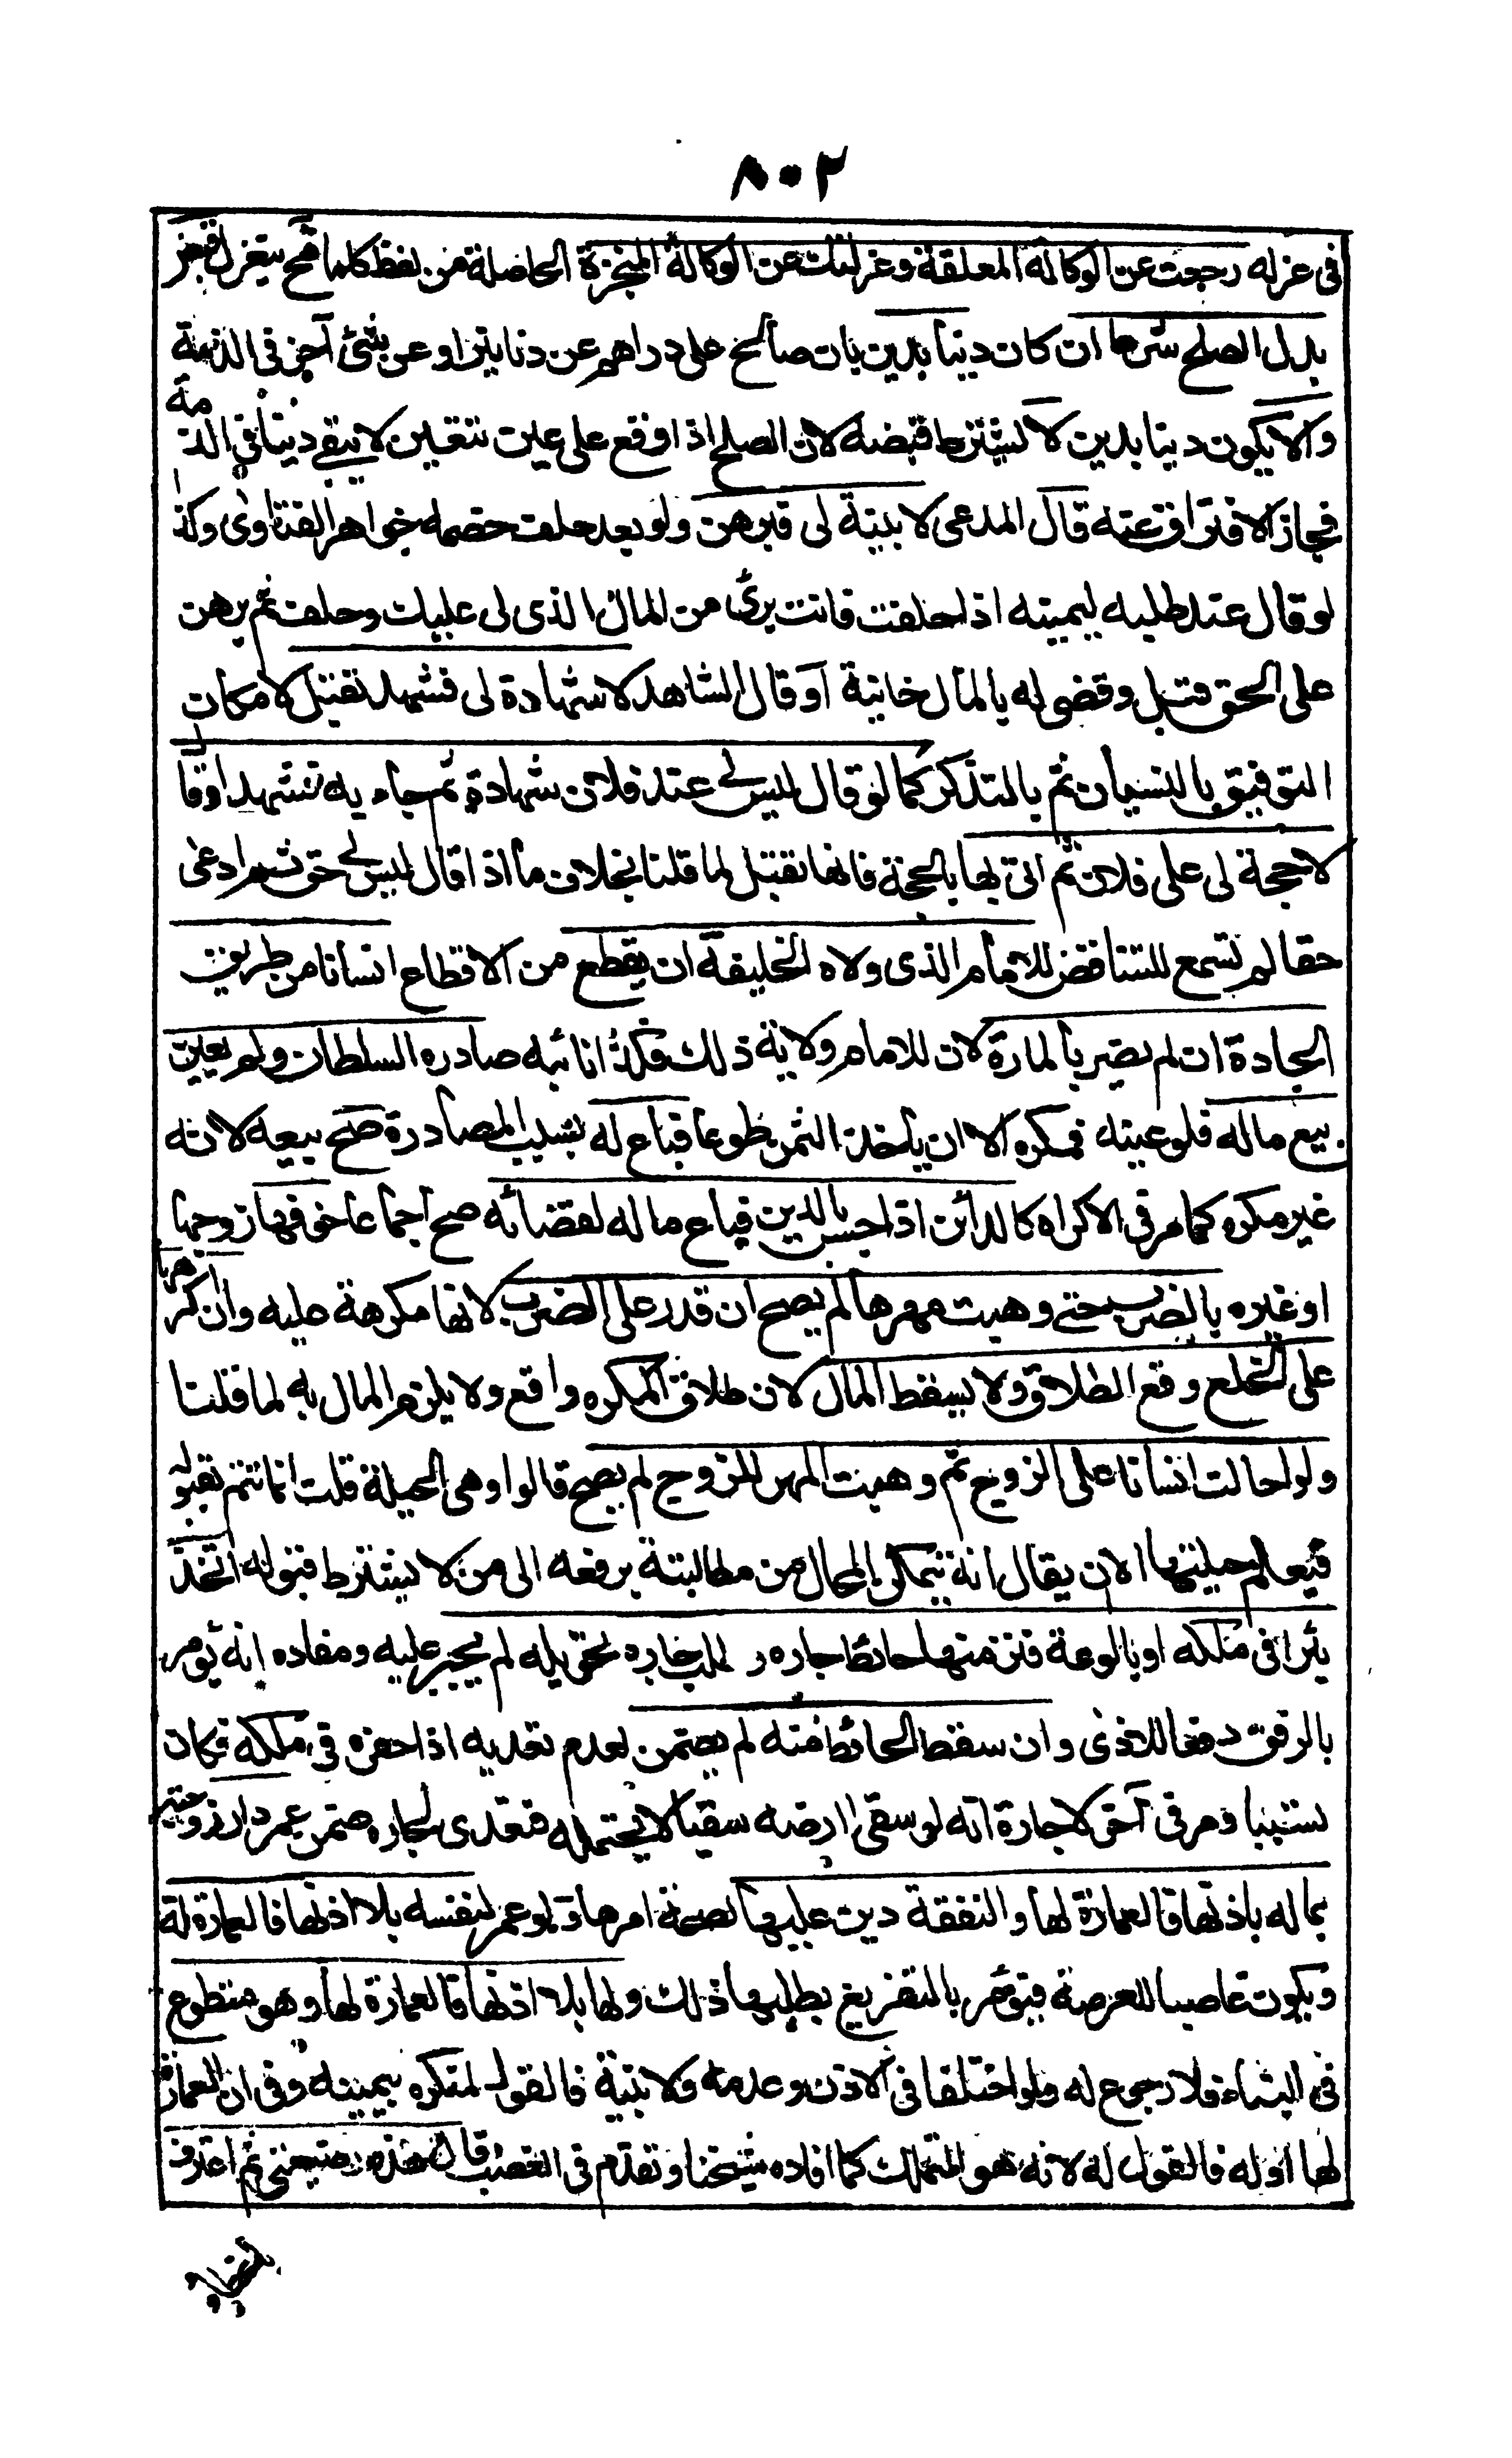 ٨٠٢
فى عزله رجعت عن الوكالة المعلقة وعزلتك عن الوكالة المنجزة الحاصلة من لفظ كلما فح ينعزل قبض
بدل الصلح شرط ان كان دينا بدين بان صالح على دراهم عن دنانير او عن شئ آخر فى الذمة
والا يكون دينا بدين لا يشترط قبضه لان الصلح اذا وقع على عين تتعين لا يبقى دينا فى الذمة
فجاز الافتراق عنه قال المدعى لا بينة لى فبرهن ولو بعد حلف خصمه جواهر الفتاوى وكذا
لو قال عند طلبه ليمينه اذا حلفت فانت برئ من المال الذى لى عليك وحلف ثم برهن
على الحق قبل وقضى له بالمال خانية او قال الشاهد لا شهادة لى فشهد تقبل لامكان
التوفيق بالنسيان ثم بالتذكر كما لو قال ليس لى عند فلان شهادة ثم جاء به فشهد او قال
لا حجة لى على فلان ثم اتى بها بالحجة فانها تقبل لما قلنا بخلاف ما اذا قال ليس لى حق ثم ادعى
حقا لم تسمع للتناقض للامام الذى ولاه الخليفة ان يقطع من الاقطاع انسانا من طريق
الجادة ان لم يضر بالمارة لان للامام ولاية ذلك فكذا نائبه صادره السلطان ولم يعين
بيع ماله فلو عينه فمكره الا ان يأخذ الثمن طوعا فباع له بسبب المصادرة صح بيعه لانه
غير مكره كما مر فى الاكراه كالدائن اذا حبس بالدين فباع ماله لقضائه صح اجماعا خوفها زوجها
او غيره بالضرب حتى وهبت مهرها لم يصح ان قدر على الضرب لانها مكرهة عليه وان اكرهها
على الخلع وقع الطلاق ولا يسقط المال لان طلاق المكره واقع ولا يلزم المال به لما قلنا
ولو احالت انسانا على الزوج ثم وهبت المهر للزوج لم يصح قالوا وهى الحيلة قلت انما تتم بقبوله
فيعلم حيلتها الا ان يقال انه يتمكن المحال من مطالبته برفعه الى من لا يشترط قبوله اتخذ
بئرا فى ملكه او بالوعة فنز منها حائط جاره وطلب جاره تحويله لم يجبر عليه ومفاده انه يؤمر
بالرفق دفعا للاذى وان سقط الحائط منه لم يضمن لعدم تعديه اذا حفره فى ملكه فكان
تسببا ومر فى آخر الاجارة انه لو سقى ارضه سقيا لا يحتمله فتعدى لجاره ضمن عمر دار زوجته
بماله باذنها فالعمارة لها والنفقة دين عليها لصحة امرها ولو عمر لنفسه بلا اذنها فالعمارة له
ويكون غاصبا للعرصة فيؤمر بالتفريغ بطلبها ذلك ولها بلا اذنها فالعمارة لها وهو متطوع
فى البناء فلا رجوع له ولو اختلفا فى الاذن وعدمه ولا بينة فالقول لمنكره بيمينه وفى ان العمارة
لها او له فالقول له لانه هو المتملك كما افاده شيخنا وتقدم فى الغصب قال هذه رضيعتى ثم اعترف